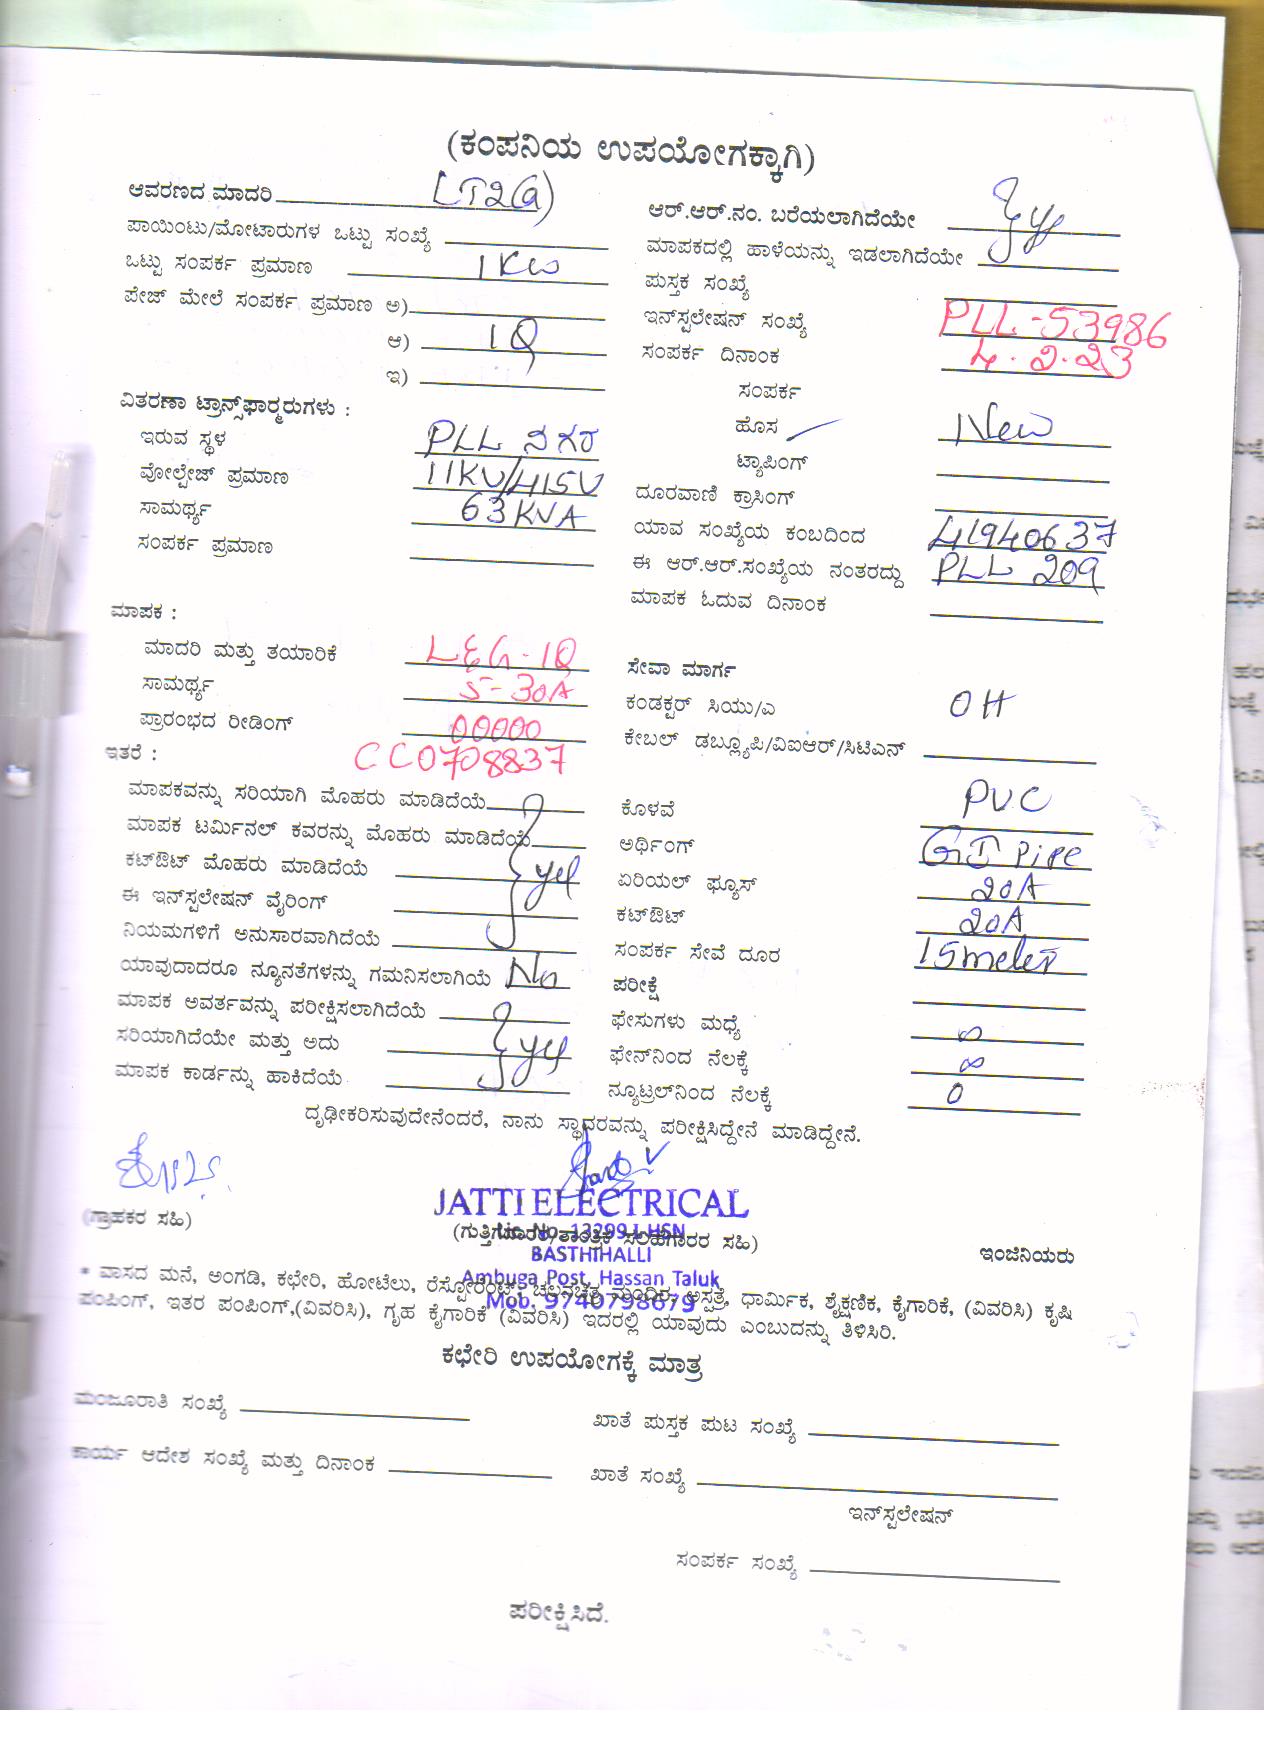 (ಕಂಪನಿಯ ಉಪಯೋಗಕ್ಕಾಗಿ)
ಆವರಣದ ಮಾದರಿ LT2(a)
ಪಾಯಿಂಟು/ಮೋಟಾರುಗಳ ಒಟ್ಟು ಸಂಖ್ಯೆ
ಒಟ್ಟು ಸಂಪರ್ಕ ಪ್ರಮಾಣ 1KW
ಪೇಜ್ ಮೇಲೆ ಸಂಪರ್ಕ ಪ್ರಮಾಣ ಅ)
ಆ) 1Q
ಇ)
ವಿತರಣಾ ಟ್ರಾನ್ಸ್‌ಫಾರ್‍ಮರುಗಳು :
ಇರುವ ಸ್ಥಳ PLL ನಗರ
ವೋಲ್ಟೇಜ್ ಪ್ರಮಾಣ 11KV/415V
ಸಾಮರ್ಥ್ಯ 63KVA
ಸಂಪರ್ಕ ಪ್ರಮಾಣ
ಮಾಪಕ :
ಮಾದರಿ ಮತ್ತು ತಯಾರಿಕೆ L&G-1Q
ಸಾಮರ್ಥ್ಯ 5-30A
ಪ್ರಾರಂಭದ ರೀಡಿಂಗ್ 00000
ಇತರೆ : CC0708837
ಮಾಪಕವನ್ನು ಸರಿಯಾಗಿ ಮೊಹರು ಮಾಡಿದೆಯೆ
ಮಾಪಕ ಟರ್ಮಿನಲ್ ಕವರನ್ನು ಮೊಹರು ಮಾಡಿದೆಯೆ
ಕಟ್‌ಔಟ್ ಮೊಹರು ಮಾಡಿದೆಯೆ yes
ಈ ಇನ್‌ಸ್ಪಲೇಷನ್ ವೈರಿಂಗ್
ನಿಯಮಗಳಿಗೆ ಅನುಸಾರವಾಗಿದೆಯೆ
ಯಾವುದಾದರೂ ನ್ಯೂನತೆಗಳನ್ನು ಗಮನಿಸಲಾಗಿಯೆ No
ಮಾಪಕ ಅವರ್ತವನ್ನು ಪರೀಕ್ಷಿಸಲಾಗಿದೆಯೆ
ಸರಿಯಾಗಿದೆಯೇ ಮತ್ತು ಅದು yes
ಮಾಪಕ ಕಾರ್ಡನ್ನು ಹಾಕಿದೆಯೆ
ಆರ್.ಆರ್.ನಂ. ಬರೆಯಲಾಗಿದೆಯೇ yes
ಮಾಪಕದಲ್ಲಿ ಹಾಳೆಯನ್ನು ಇಡಲಾಗಿದೆಯೇ
ಪುಸ್ತಕ ಸಂಖ್ಯೆ
ಇನ್‌ಸ್ಪಲೇಷನ್ ಸಂಖ್ಯೆ PLL-53986
ಸಂಪರ್ಕ ದಿನಾಂಕ 4.2.23
ಸಂಪರ್ಕ
ಹೊಸ New
ಟ್ಯಾಪಿಂಗ್
ದೂರವಾಣಿ ಕ್ರಾಸಿಂಗ್
ಯಾವ ಸಂಖ್ಯೆಯ ಕಂಬದಿಂದ 41940637
ಈ ಆರ್.ಆರ್.ಸಂಖ್ಯೆಯ ನಂತರದ್ದು PLL 209
ಮಾಪಕ ಓದುವ ದಿನಾಂಕ
ಸೇವಾ ಮಾರ್ಗ
ಕಂಡಕ್ಟರ್ ಸಿಯು/ಎ OH
ಕೇಬಲ್ ಡಬ್ಲ್ಯೂಪಿ/ವಿಐಆರ್/ಸಿಟಿಎನ್
ಕೊಳವೆ PVC
ಅರ್ಥಿಂಗ್ GI Pipe
ಏರಿಯಲ್ ಫ್ಯೂಸ್ 20A
ಕಟ್‌ಔಟ್ 20A
ಸಂಪರ್ಕ ಸೇವೆ ದೂರ 15meter
ಪರೀಕ್ಷೆ
ಫೇಸುಗಳು ಮಧ್ಯೆ ∞
ಫೇನ್‌ನಿಂದ ನೆಲಕ್ಕೆ ∞
ನ್ಯೂಟ್ರಲ್‌ನಿಂದ ನೆಲಕ್ಕೆ 0
ದೃಢೀಕರಿಸುವುದೇನೆಂದರೆ, ನಾನು ಸ್ಥಾವರವನ್ನು ಪರೀಕ್ಷಿಸಿದ್ದೇನೆ ಮಾಡಿದ್ದೇನೆ.
JATTI ELECTRICAL
Lic. No. 13299 LHSN
BASTHIHALLI
Ambuga Post, Hassan Taluk
Mob. 9740798679
(ಗ್ರಾಹಕರ ಸಹಿ)
(ಗುತ್ತಿಗೆದಾರರ/ತಾಂತ್ರಿಕ ಸಲಹೆಗಾರರ ಸಹಿ)
ಇಂಜಿನಿಯರು
* ವಾಸದ ಮನೆ, ಅಂಗಡಿ, ಕಛೇರಿ, ಹೋಟೆಲು, ರೆಸ್ಟೋರೆಂಟ್, ಚಲನಚಿತ್ರ ಮಂದಿರ, ಅಸ್ಪತ್ರೆ, ಧಾರ್ಮಿಕ, ಶೈಕ್ಷಣಿಕ, ಕೈಗಾರಿಕೆ, (ವಿವರಿಸಿ) ಕೃಷಿ
ಪಂಪಿಂಗ್, ಇತರ ಪಂಪಿಂಗ್,(ವಿವರಿಸಿ), ಗೃಹ ಕೈಗಾರಿಕೆ (ವಿವರಿಸಿ) ಇದರಲ್ಲಿ ಯಾವುದು ಎಂಬುದನ್ನು ತಿಳಿಸಿರಿ.
ಕಛೇರಿ ಉಪಯೋಗಕ್ಕೆ ಮಾತ್ರ
ಮಂಜೂರಾತಿ ಸಂಖ್ಯೆ
ಖಾತೆ ಪುಸ್ತಕ ಪುಟ ಸಂಖ್ಯೆ
ಕಾರ್ಯ ಆದೇಶ ಸಂಖ್ಯೆ ಮತ್ತು ದಿನಾಂಕ
ಖಾತೆ ಸಂಖ್ಯೆ
ಇನ್‌ಸ್ಪಲೇಷನ್
ಸಂಪರ್ಕ ಸಂಖ್ಯೆ
ಪರೀಕ್ಷಿಸಿದೆ.